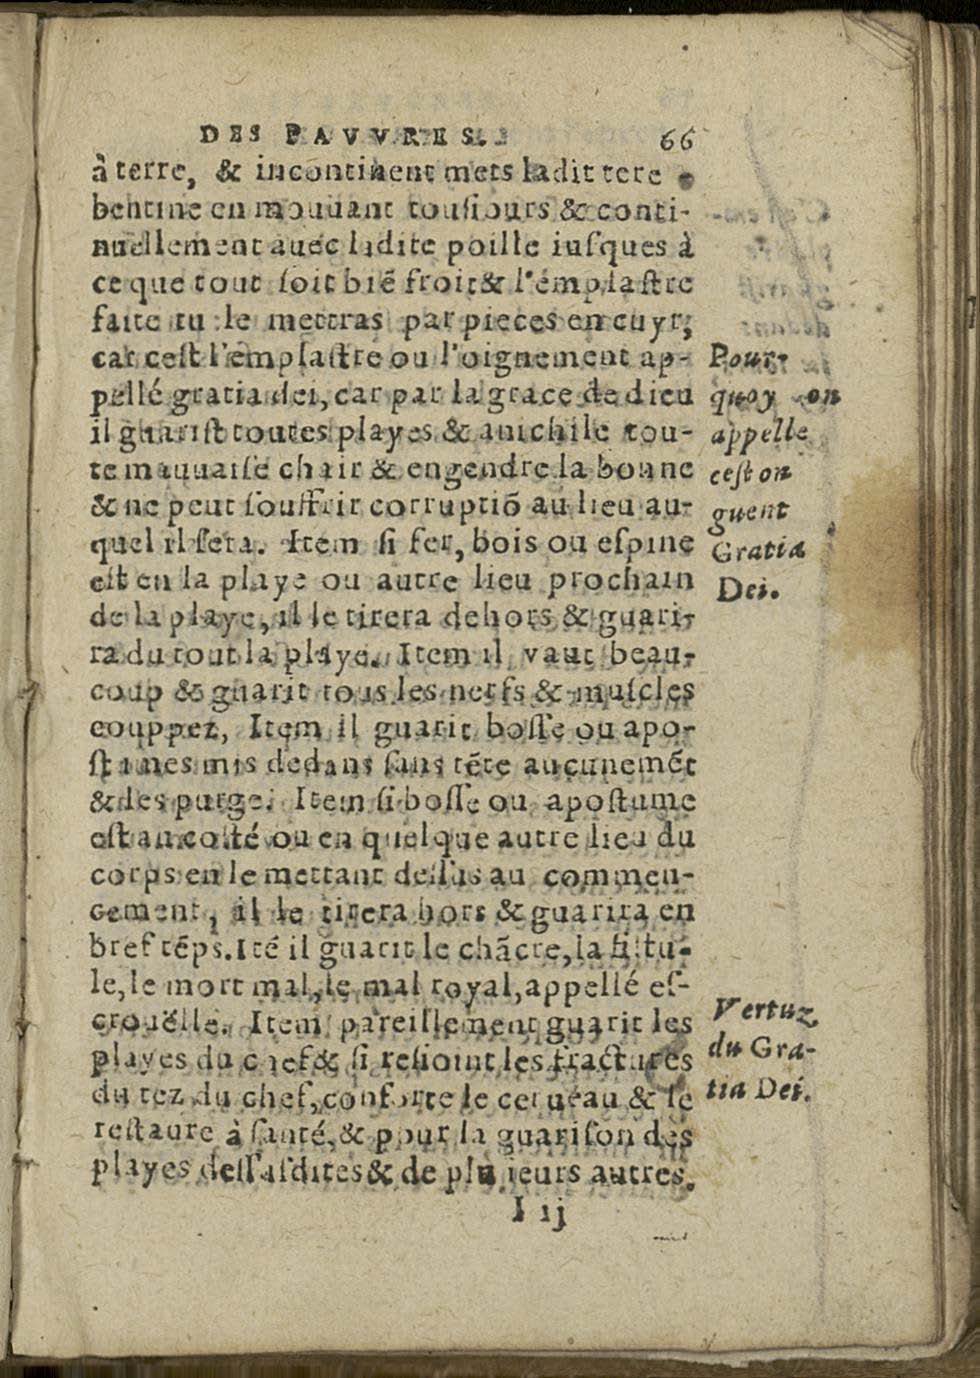 DES PAVVRES. 66
à terre, & incontinent mets ladit tere
bentine en mouuant tousiours & conti-
nuellement auec ladite poille iusques à
ce que tout soit biẽ froit & l'émplastre
faite tu le mettras par pieces en cuyr,
car cest l'emplastre ou l'oignement ap-
pellé gratia dei, car par la grace de dieu
il guarist toutes playes & anichile tou-
te mauuaise chair & engendre la bonne
& ne peut souffrir corruptiõ au lieu au-
quel il sera. Item si fer, bois ou espine
est en la playe ou autre lieu prochain
de la playe, il le tirera dehors & guari-
ra du tout la playe. Item il vaut beau-
coup & guarit tous les nerfs & muscles
couppez, Item il guarit bosse ou apo-
stumes mis dedans sans tẽte aucunemẽt
& des purge. Item si bosse ou apostume
est au costé ou en quelque autre lieu du
corps en le mettant dessus au commen-
cement, il le tirera hors & guarira en
bref tẽps. Itẽ il guarit le chãcre, la fistu-
le, le mort mal, le mal royal, appellé es-
crouëlle. Item pareillement guarit les
playes du chef & si resioint les fractures
du tez du chef, conforte le cerueau & le
restaure à santé, & pour la guarison des
playes dessusdites & de plusieurs autres.
I ij
Pour-
quoy on
appelle
cest on
guent
Gratia
Dei.
Vertuz
du Gra-
tia Dei.